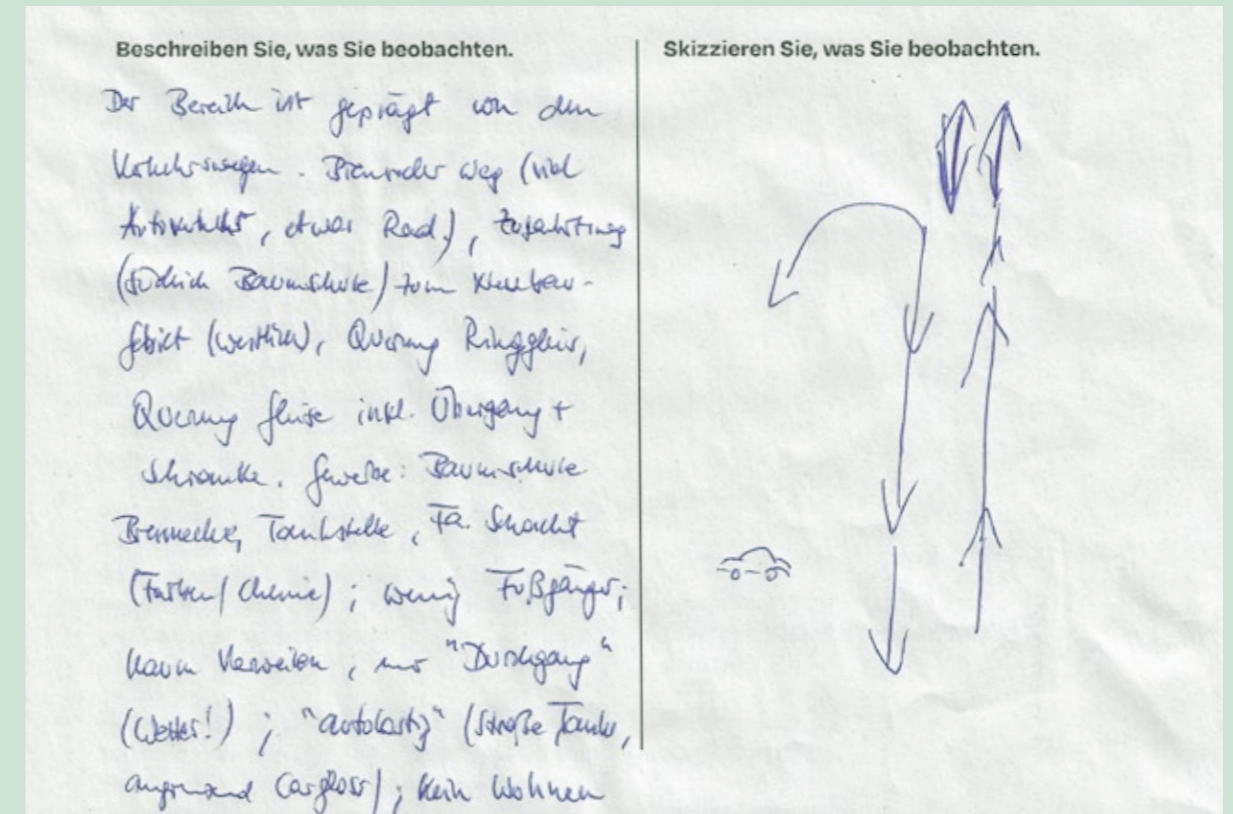 Beschreiben Sie, was Sie beobachten.
Der Bereich ist geprägt von den
Verkehrswegen. Bienroder Weg (viel
Autoverkehr, etwas Rad), Zufahrtsweg
(südlich Baumschule) zum Neubau-
gebiet (westlich), Querung Ringgleis,
Querung Gleise inkl. Übergang +
Schranke. Gewerbe: Baumschule
Brennecke, Tankstelle, Fa. Schacht
(Farben/Chemie); wenig Fußgänger;
kaum Verweilen, nur "Durchgang"
(Wetter!); "autolastig" (Straße, Tanke,
angrenzend Carglass); kein Wohnen
Skizzieren Sie, was Sie beobachten.